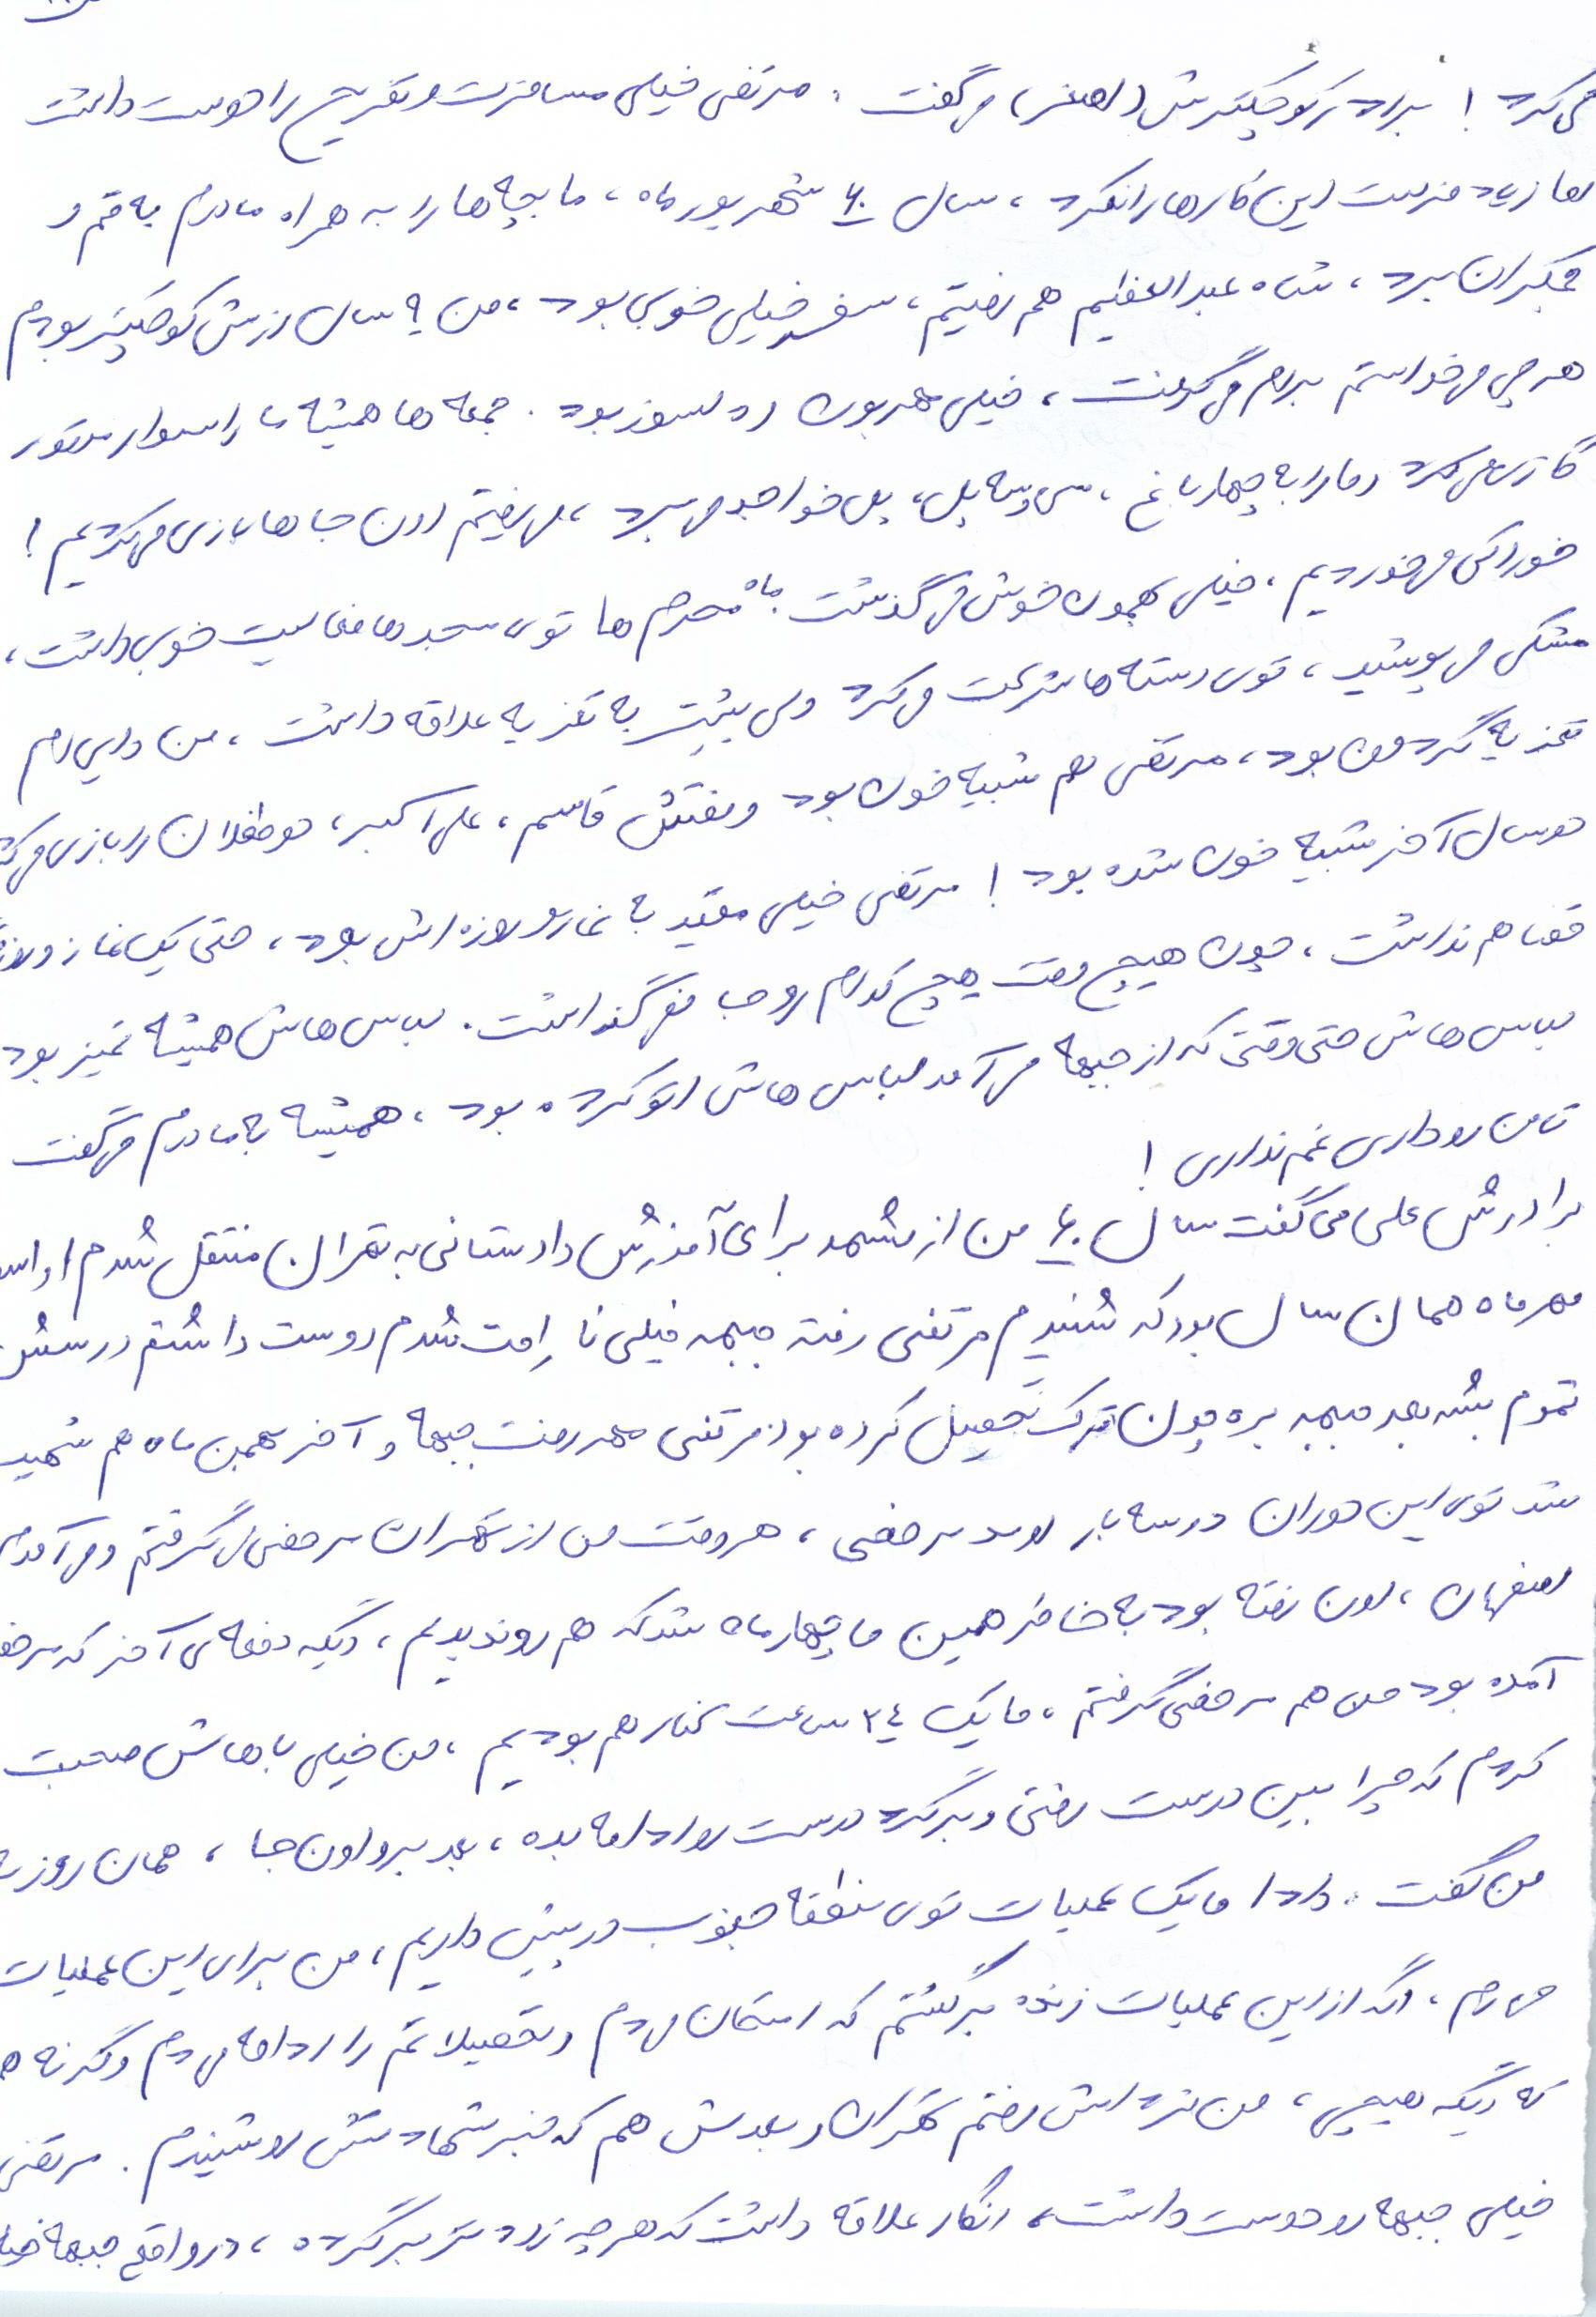 می کرد! برادر کوچکترش (اصغر) می گفت: مرتضی خیلی مسافرت و تفریح را دوست داشت
اما زیاد فرصت این کارها را نکرد، سال ۶۰ شهریور ماه، ما بچه ها را به همراه مادرم به قم و
جمکران برد، شاه عبدالعظیم هم رفتیم، سفر خیلی خوبی بود، من ۹ سال ازش کوچکتر بودم
هر چی می خواستم برام می گرفت، خیلی مهربون و دلسوز بود. جمعه ها همیشه ما را سوار موتور
گازی می کرد و ما را به چهارباغ، سی و سه پل، پل خواجو می برد، می رفتیم اون جاها بازی می کردیم!
خوراکی می خوردیم، خیلی بهمون خوش می گذشت. ماه محرم ها توی مسجدها فعالیت خوبی داشت،
مشکی می پوشید، توی دسته ها شرکت می کرد ولی بیشتر به تعزیه علاقه داشت، من دایی ام
تعزیه گردون بود، مرتضی هم شبیه خون بود و نقش قاسم، علی اکبر، دو طفلان را بازی می کرد
دو سال آخر شبیه خون شده بود! مرتضی خیلی مقید به نماز و روزه اش بود، حتی یک نماز و روزه
قضا هم نداشت، چون هیچ وقت هیچ کدام رو جا نمی گذاشت. لباس هاش همیشه تمیز بود
لباس هاش حتی وقتی که از جبهه می آمد لباس هاش اتو کرده بود، همیشه به مادرم می گفت
تا من رو داری غم نداری!
برادرش علی می گفت سال ۶۰ من از مشهد برای آموزش دادستانی به تهران منتقل شدم
مهرماه همان سال بود که شنیدم مرتضی رفته جبهه خیلی ناراحت شدم دوست داشتم درسش
تموم بشه بعد جبهه بره چون ترک تحصیل کرده بود مرتضی مهر رفت جبهه و آخر بهمن ماه هم شهید
شد توی این دوران دو سه بار اومد مرخصی، هر وقت من از تهران مرخصی می گرفتم و می آمدم
اصفهان، اون رفته بود به خاطر همین ما چهار ماه شد که هم رو ندیدیم، دیگه دفعه ی آخر که مرخصی
آمده بود من هم مرخصی گرفتم، ما یک ۲۴ ساعت کنار هم بودیم، من خیلی باهاش صحبت
کردم که چرا بین درست رفتی و برگرد درست رو ادامه بده، بعد برو اون جا، همان روز به
من گفت: دادا ما یک عملیات توی منطقه جنوب در پیش داریم، من برای این عملیات
می رم، اگه از این عملیات زنده برگشتم که امتحان می دم و تحصیلاتم را ادامه می دم و گرنه
که دیگه هیچی، من فرداش رفتم تهران و بعدش هم که خبر شهادتش رو شنیدم. مرتضی
خیلی جبهه رو دوست داشت، انگار علاقه داشت که هر چه زودتر برگرده، در واقع جبهه